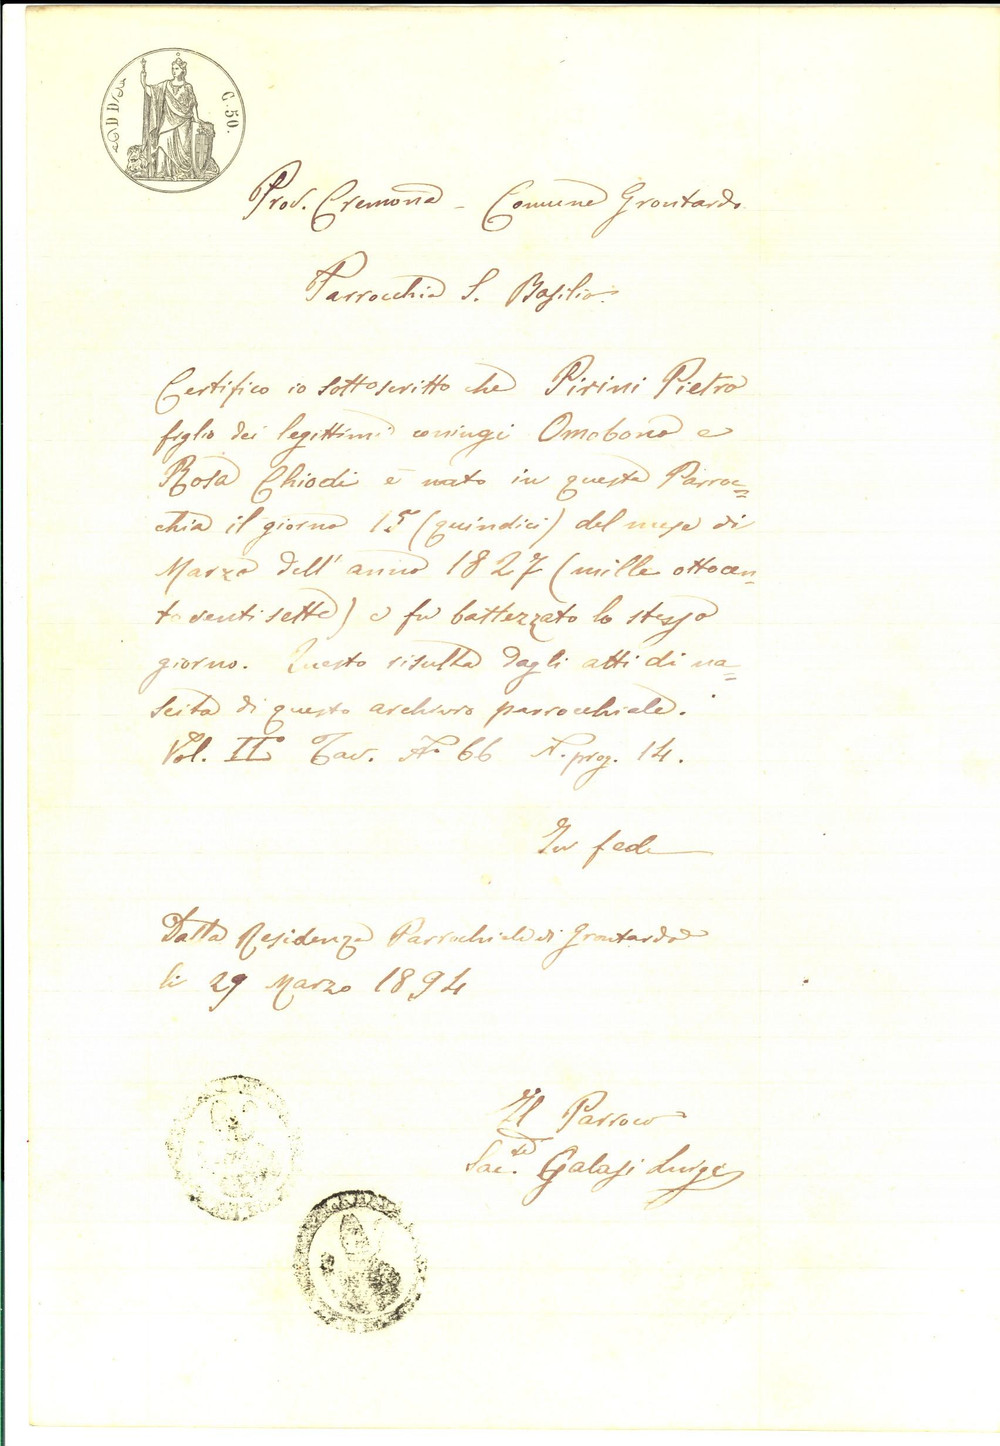 C. 50.
Prov. Cremona - Comune Grontardo
Parrocchia S. Basilio.
Certifico io sottoscritto che Pirini Pietro
figlio dei legittimi coniugi Omobono e
Rosa Chiodi è nato in questa Parroc=
chia il giorno 15 (quindici) del mese di
Marzo dell' anno 1827 (mille ottocen=
toventisette) e fu battezzato lo stesso
giorno. Questo risulta dagli atti di na=
scita di questo archivio parrocchiale.
Vol. II° Tav. N° 66 N. prog. 14.
In fede
Dalla Residenza Parrochiale di Grontardo
li 29 Marzo 1894
Il Parroco
Sac. Galasi Luigi